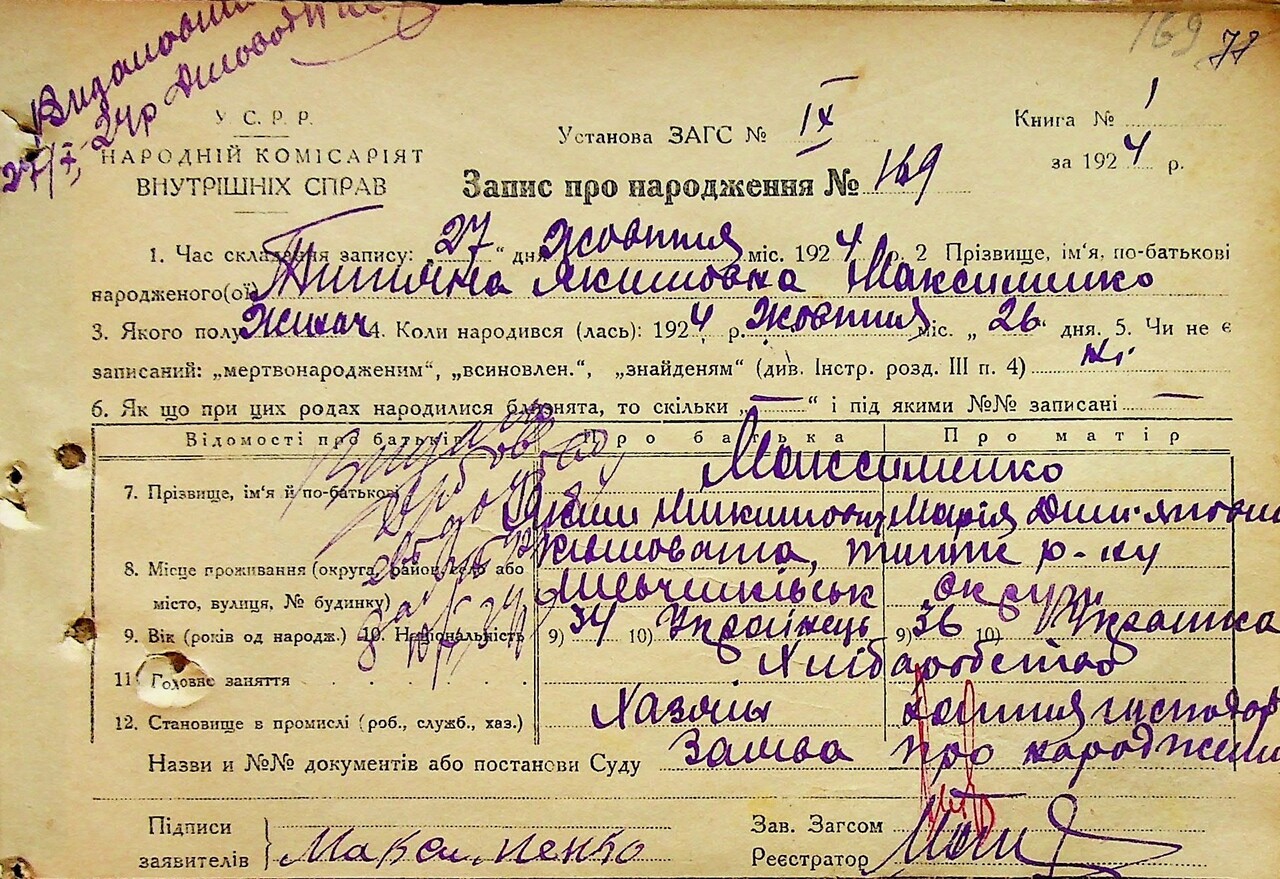 169 78
У. С. Р. Р.
НАРОДНІЙ КОМІСАРІЯТ
ВНУТРІШНІХ СПРАВ
27/X, 24р
Установа ЗАГС № IX
Книга № 1
за 1924 р.
Запис про народження № 169
1. Час складання запису: „27“ дня жовтня міс. 1924 р. 2 Прізвище, ім'я, по-батькові
народженого(ої) Титяна Якимовна Максименко
3. Якого полу Жиноч 4. Коли народився (лась): 1924 р. жовтня міс. „26“ дня. 5. Чи не є
записаний: „мертвонародженим“, „всиновлен.“, „знайденям“ (див. Інстр. розд. III п. 4) Ні
6. Як що при цих родах народилися близнята, то скільки „—“ і під якими №№ записані —
Відомості про батьків Про батька Про матір
Максименко
7. Прізвище, ім'я й по-батькові Яким Микитович Марія
8. Місце проживання (округа, район, село або р-ну
місто, вулиця, № будинку) округи
9. Вік (років од народж.) 10. Національність 9) 34 10) Українець 9) 36 10) Українка
11. Головне заняття Хліборобство
12. Становище в промислі (роб., служб., хаз.) Хазяїн
Назви и №№ документів або постанови Суду Заява про народження
Підписи
заявителів Максименко
Зав. Загсом
Реєстратор